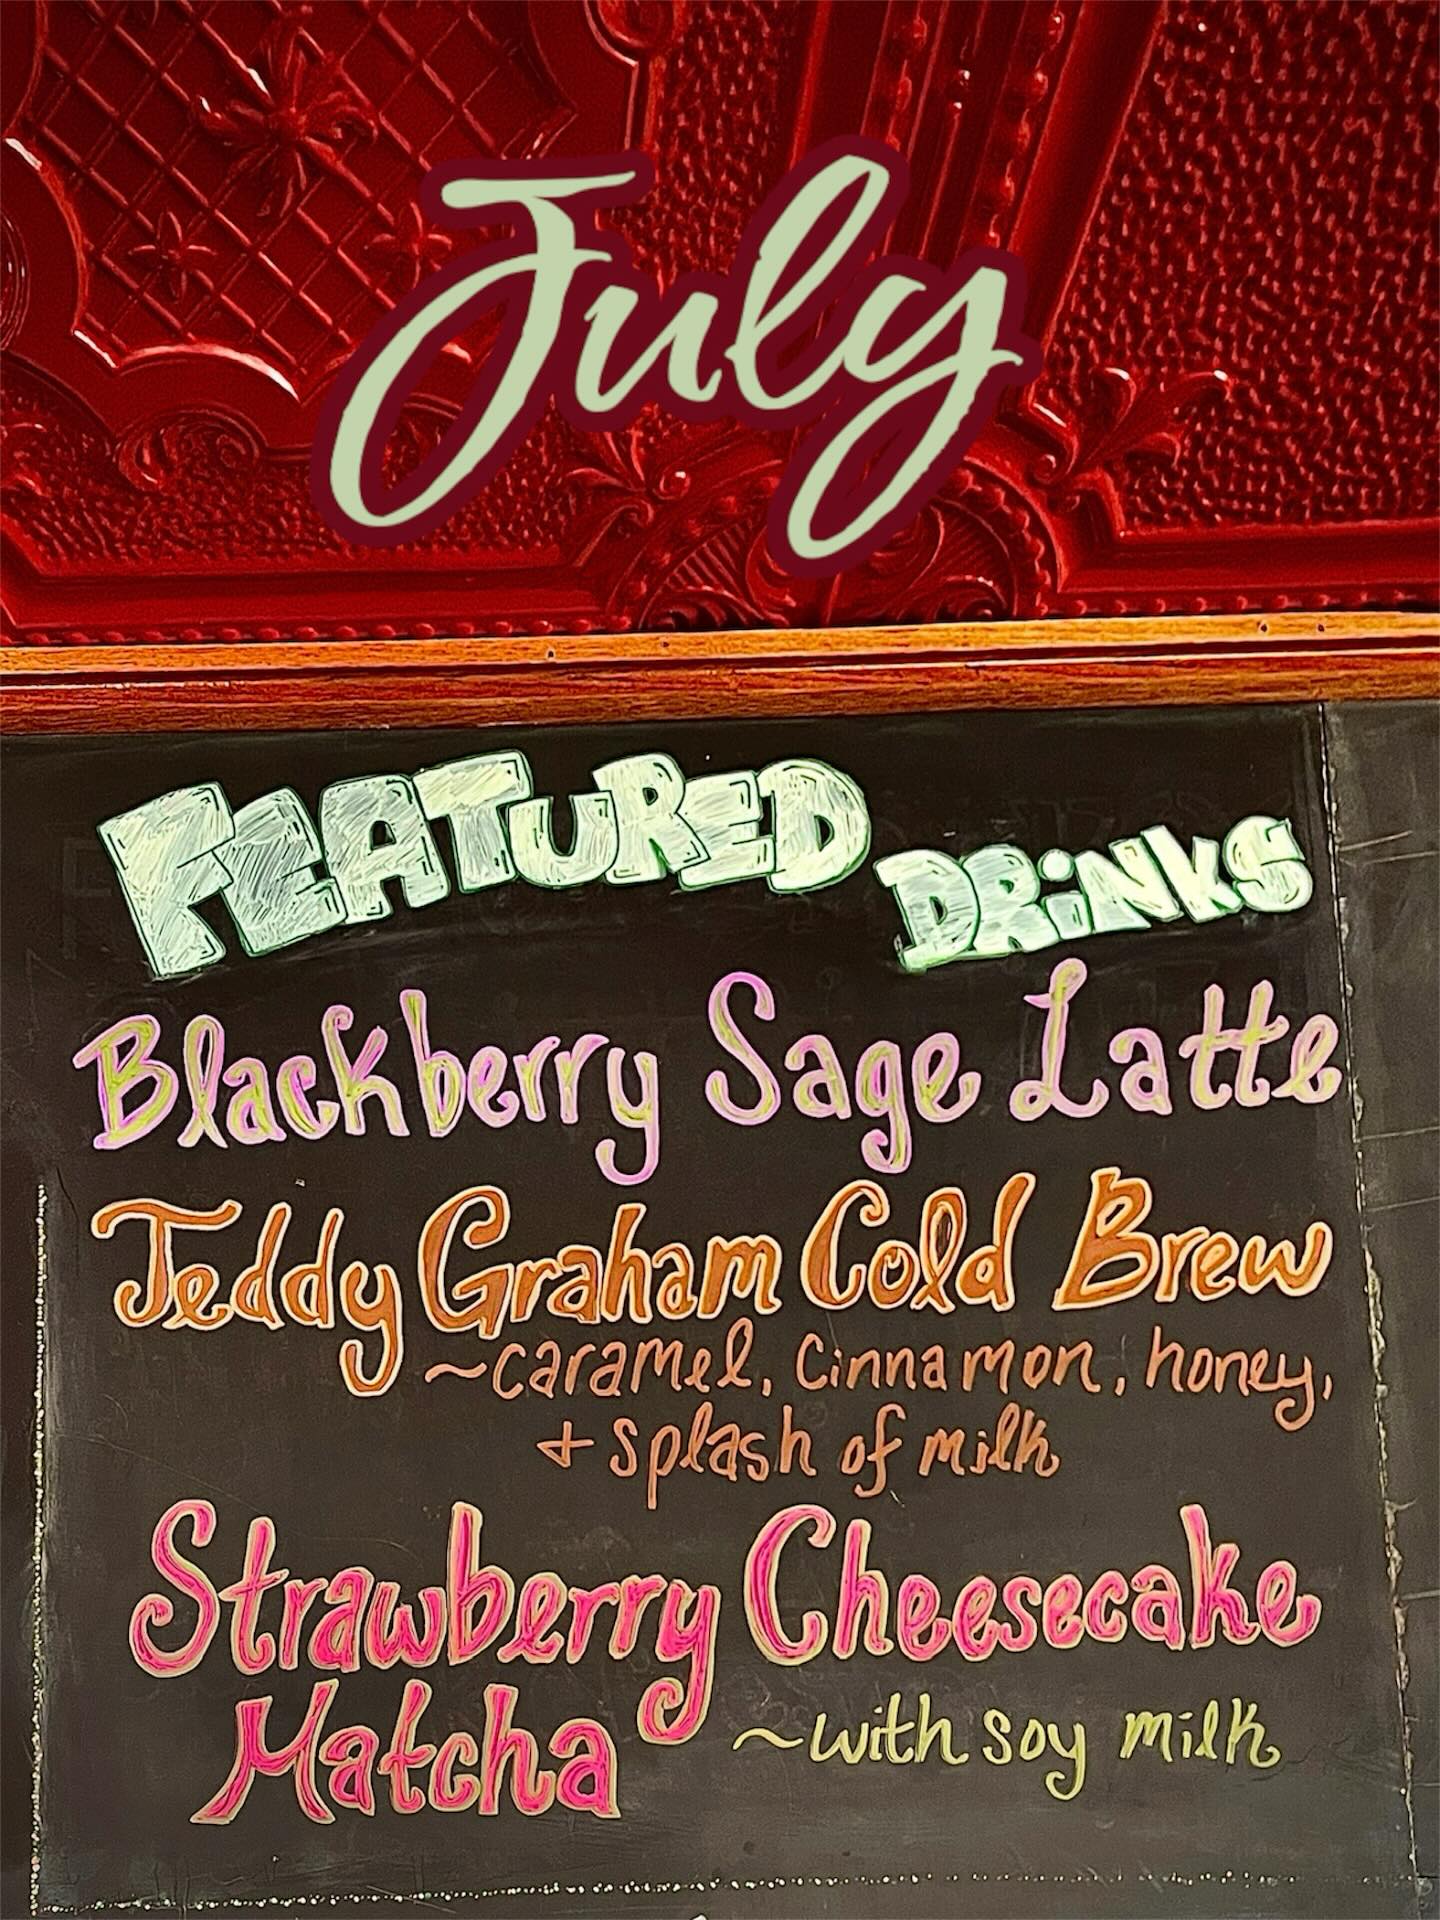 July
FEATURED DRiNKS
Blackberry Sage Latte
Teddy Graham Cold Brew
~caramel, cinnamon, honey,
+ splash of milk
Strawberry Cheesecake
Matcha ~with soy milk